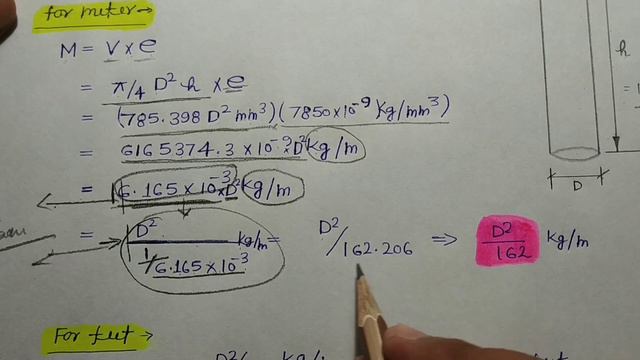 for meter →
M = V × e
= π/4 D² h × e
= (785.398 D² mm³)(7850×10⁻⁹ kg/mm³)
= 6165374.3 × 10⁻⁹D² kg/m
= 6.165×10⁻³×D² kg/m
= D² / 1/6.165×10⁻³ kg/m = D²/162.206 ⇒ D²/162 kg/m
For feet →
h
D